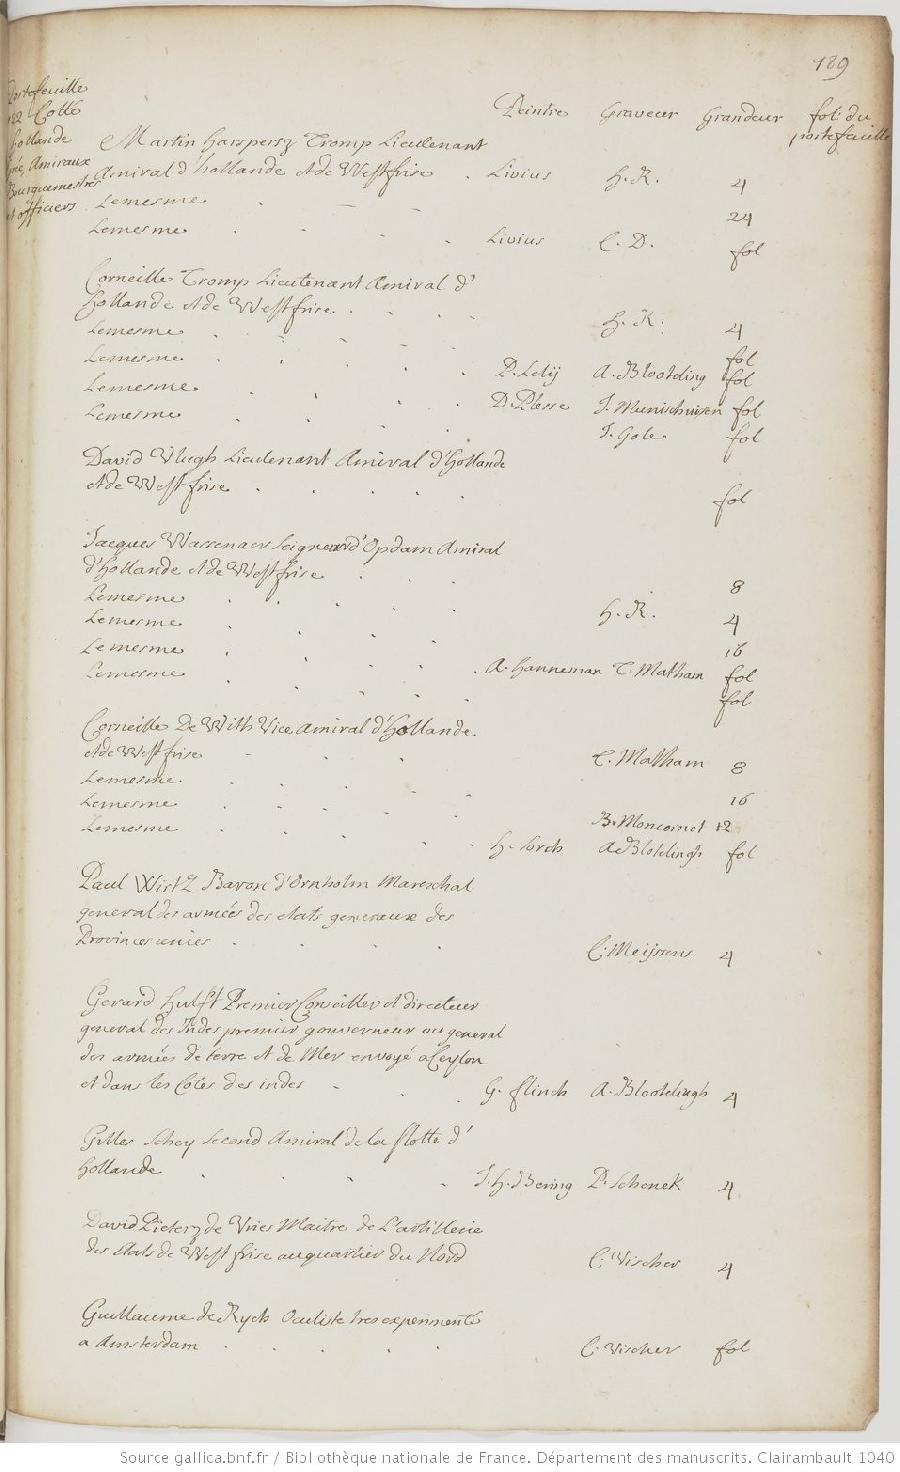 189
Portefeuille
122 Collé
hollande
Amiraux
Bourguemestres
et officiers
Peintre Graveur Grandeur fol: du portefeuille
Martin Harpersz Tromp Lieutenant
Amiral d'hollande et de Westfrise . Livius H. R. 4
Lemesme 24
Lemesme . . . . Livius C. D. fol
Corneille Tromp Lieutenant Amiral d'
hollande et de Westfrise. H. R. 4
Lemesme fol
Lemesme P. Lely A. Blooteling fol
Lemesme D. Plesse J. Munichuisen fol
Lemesme J. Gole. fol
David Vlugh Lieutenant Amiral d'hollande
et de Westfrise . . . . fol
Jacques Wassenaer Seigneur d'Opdam Amiral
d'hollande et de Westfrise 8
Lemesme H. R. 4
Lemesme 16
Lemesme . A. Hanneman T. Matham fol
Lemesme fol
Corneille De With Vice Amiral d'hollande.
et de Westfrise C. Matham 8
Lemesme 16
Lemesme B. Moncornet 12
Lemesme H. Sorch A. Blotelingh fol
Paul Wirtz Baron d'Ornholm Mareschal
general des armées des etats generaux des
Provinces unies C. Meijssens 4
Gerard Hulft Premier Conseiller et directeur
general des Indes premier gouverneur ou general
des armées de terre et de Mer envoyé a Ceylon
et dans les Côtes des indes G. flinck A. Blootelingh 4
Gilles Schey Second Amiral de la flotte d'
hollande J. H. Bering P. Schenck 4
David Pietersz de Vries Maitre de L'artillerie
des etats de Westfrise au quartier du Nord C. Vischer 4
Guillaume de Ryck Oculiste tres experimenté
a Amsterdam C. Vischer fol
Source gallica.bnf.fr / Bibliothèque nationale de France. Département des manuscrits. Clairambault 1040